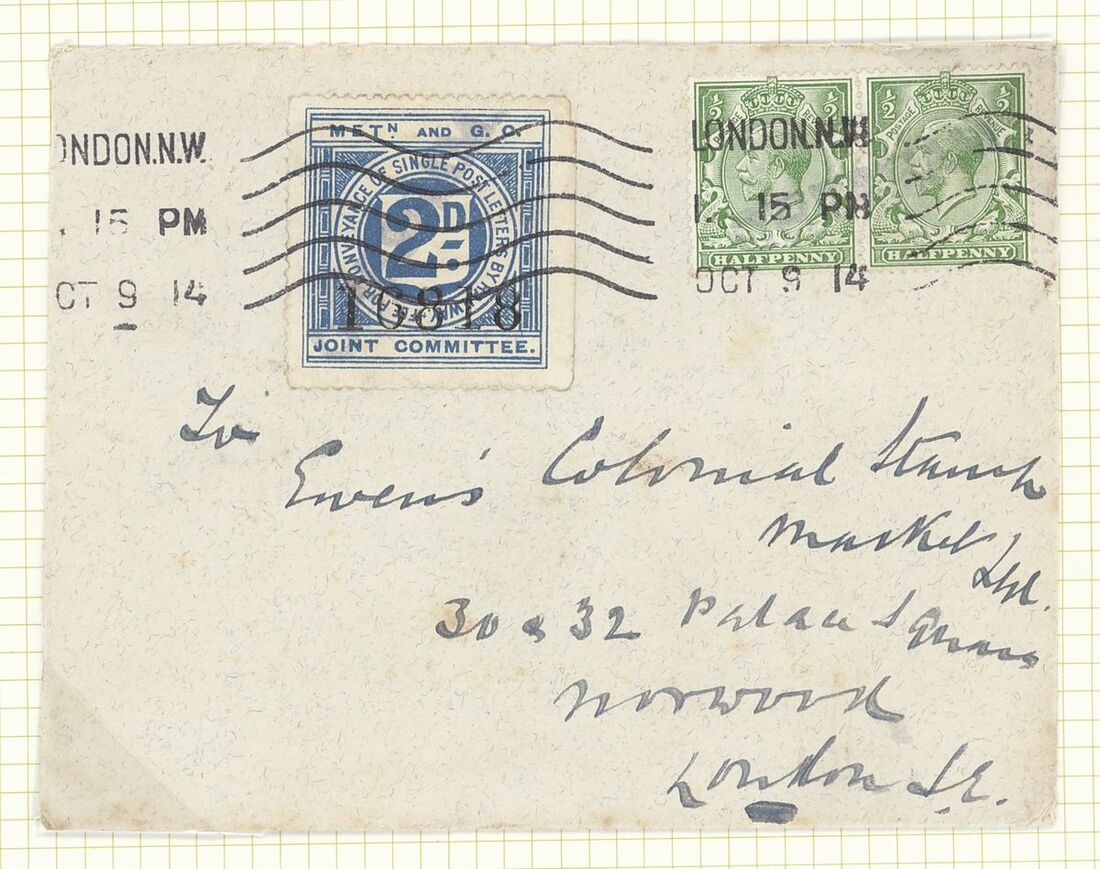 ONDON.N.W.
15 PM
OCT 9 14
METN AND G. C.
CONVEYANCE OF SINGLE POST LETTERS BY RAILWAY. FEE FOR
2D
10818
JOINT COMMITTEE.
½ ½
POSTAGE REVENUE
HALFPENNY
½ ½
POSTAGE REVENUE
HALFPENNY
LONDON.N.W.
15 PM
OCT 9 14
To
Ewen's Colonial Stamp
Market Ltd.
30 & 32 Palace Square
Norwood
London S.E.